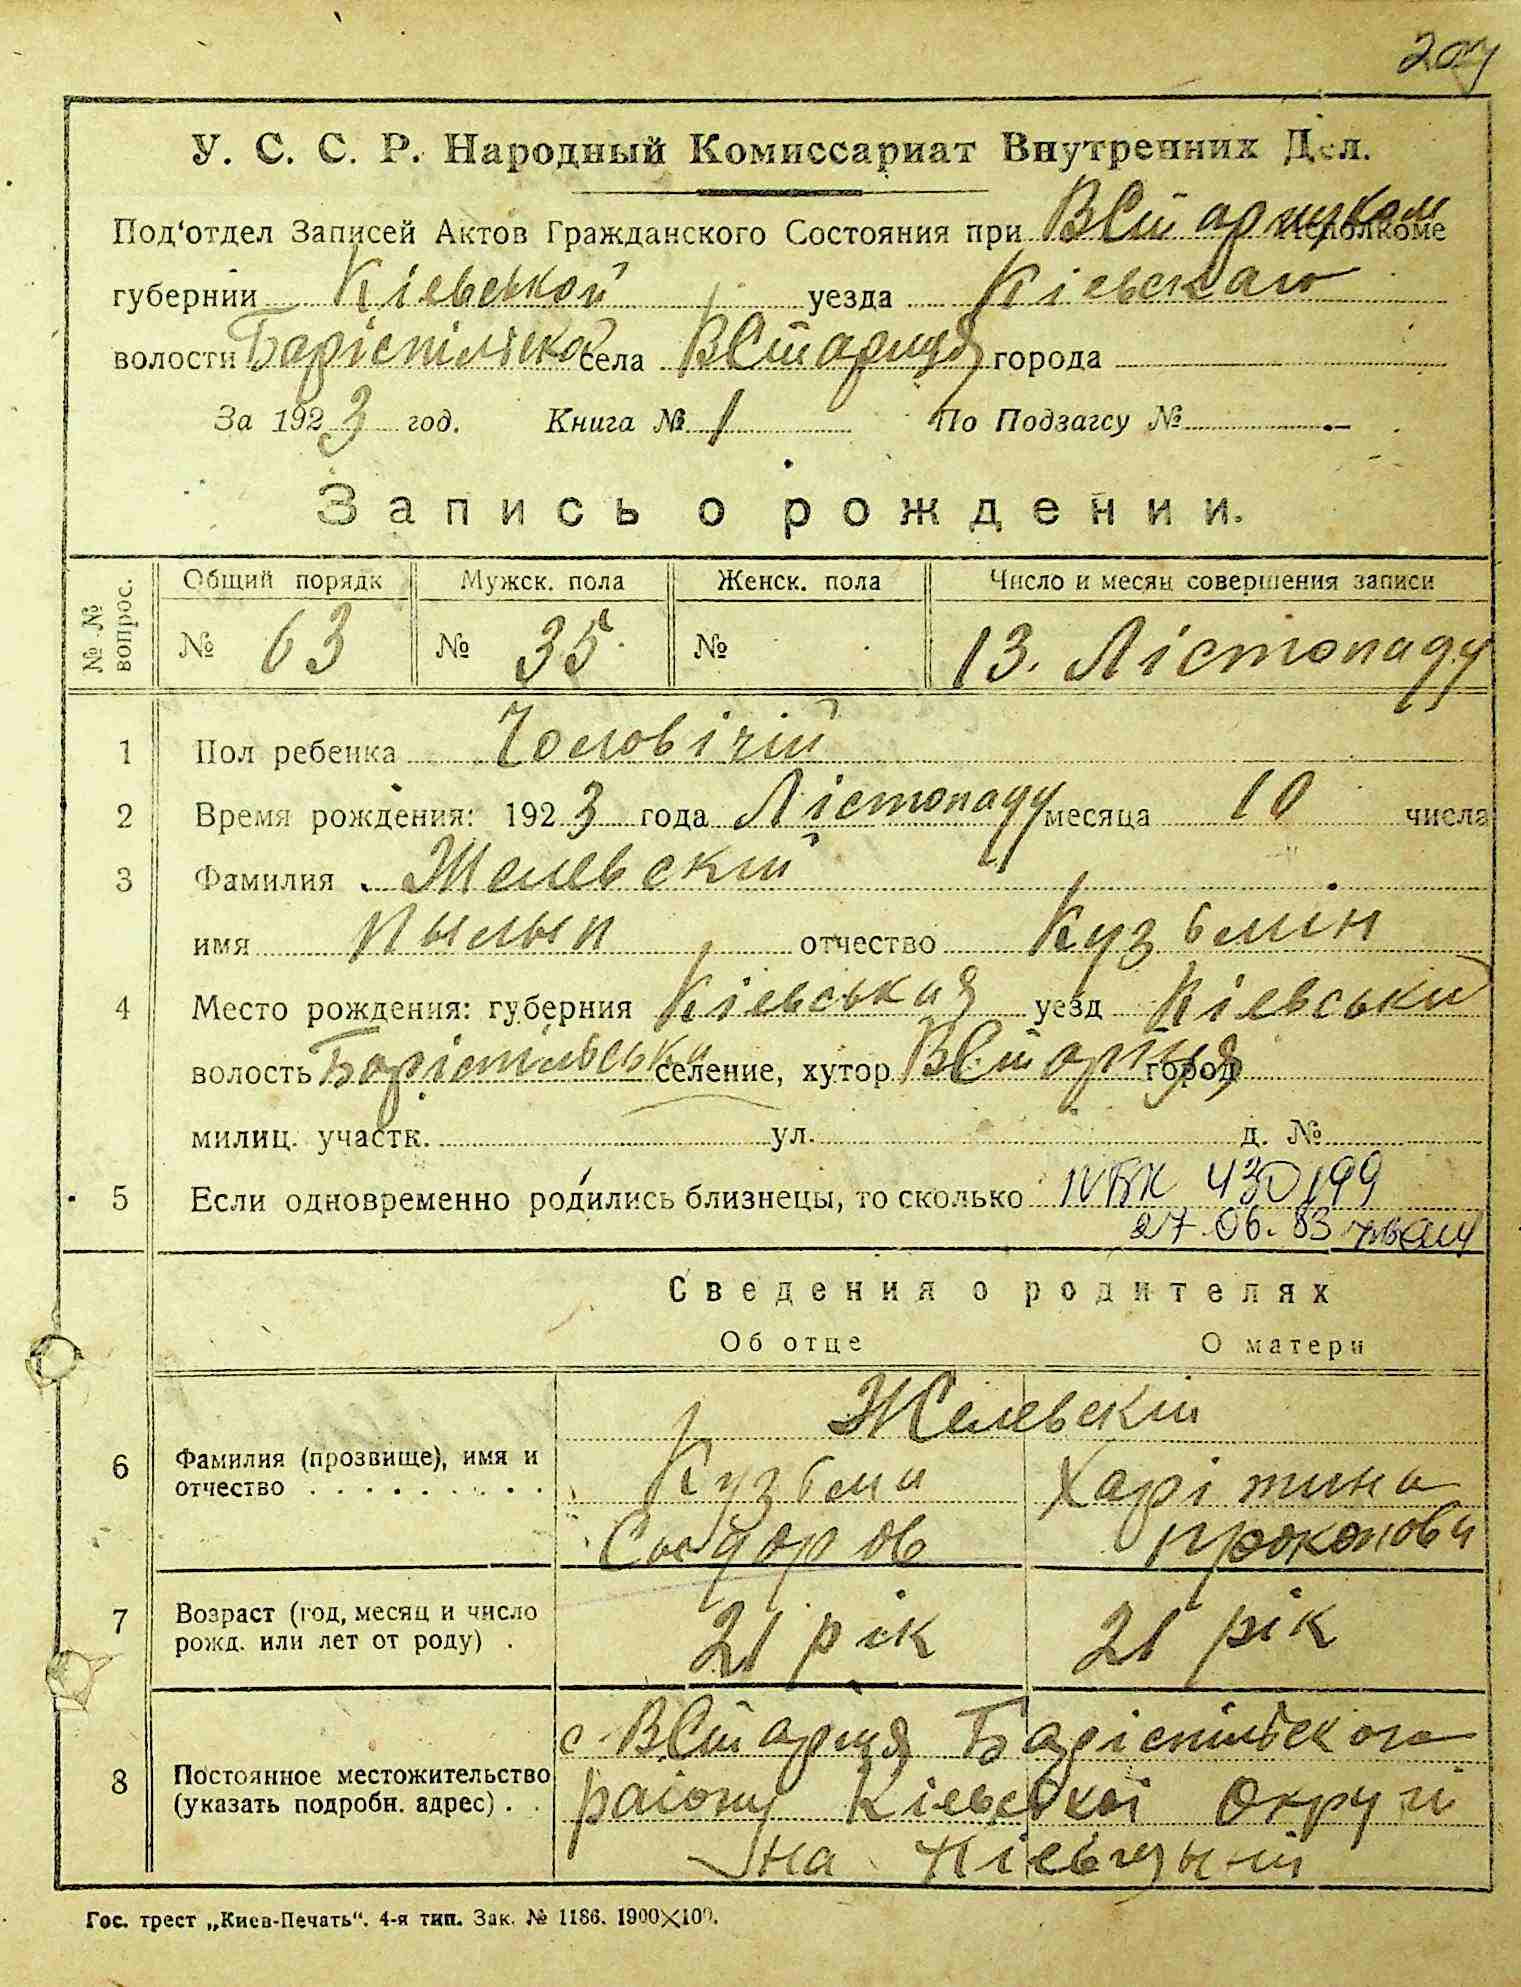 У. С. С. Р. Народный Комиссариат Внутренних Дел.
Под'отдел Записей Актов Гражданского Состояния при ВСтарицком Исполкоме
губернии Кіевськой уезда Кіевскаго
волости Барiспiльськой села ВСтариця города
За 1923 год. Книга № 1 По Подзагсу № –
Запись о рождении.
№ № вопрос.
Общий порядк Мужск. пола Женск. пола Число и месяц совершения записи
№ 63 № 35 № 13. Лістопаду
1 Пол ребенка Чоловічій
2 Время рождения: 1923 года Лістопаду месяца 10 числа
3 Фамилия Желевскій
имя Пылып отчество Кузьмін
4 Место рождения: губерния Кіевськая уезд Кіевськи
волость Борiспiльська селение, хутор ВСтариця город
милиц. участк. ул. д. №
5 Если одновременно родились близнецы, то сколько IV БК 430199
27.06.83
Сведения о родителях
Об отце О матери
Желевскій
6 Фамилия (прозвище), имя и отчество Кузьма Харiтина
Сыдоров Прокопова
7 Возраст (год, месяц и число рожд. или лет от роду) 21 рік 21 рік
с ВСтариця Барiспiльского
8 Постоянное местожительство (указать подробн. адрес) раіону Кіевськоі Округи
на Кіевщыні
Гос. трест „Киев-Печать". 4-я тип. Зак. № 1186. 1900×100.